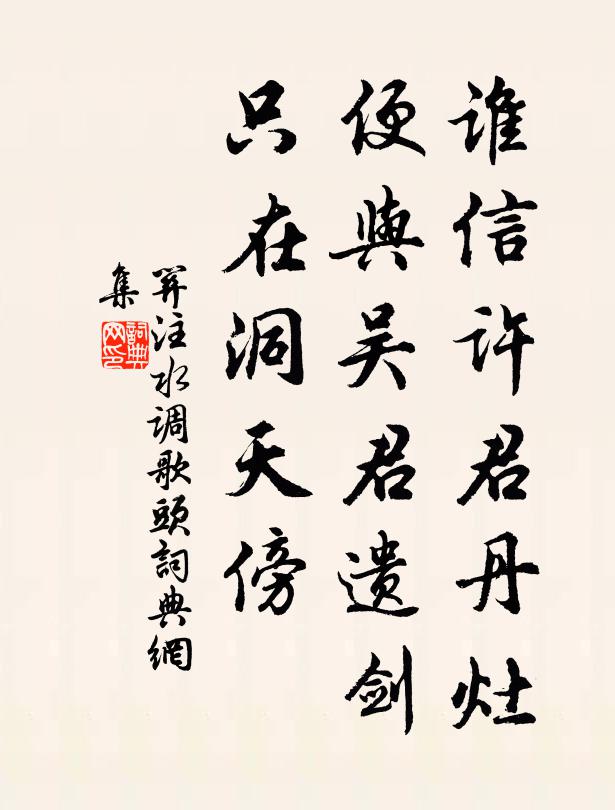 谁信许君丹灶
便與吴君遗剑
只在洞天傍
羿注水调歌頭詞典網
集
詞典
网印